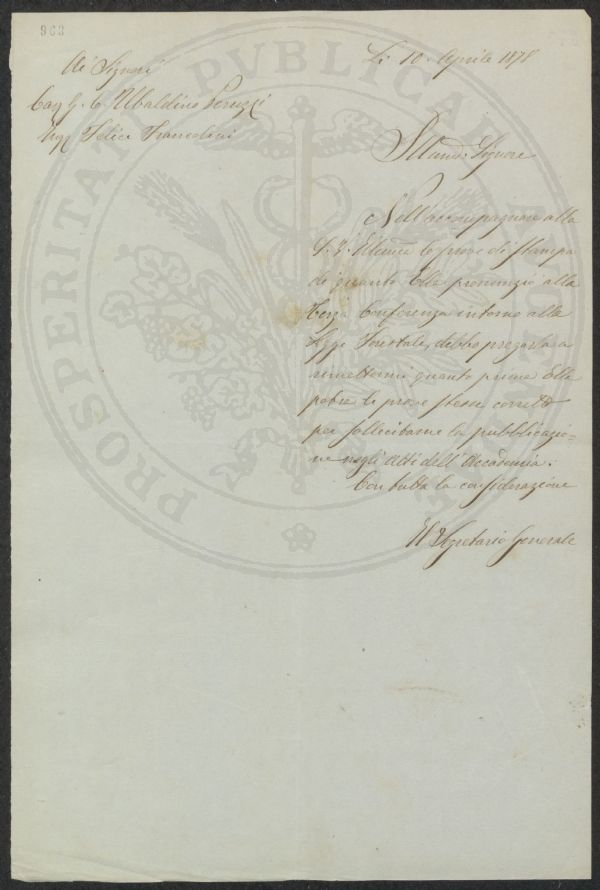 963
Ai Signori
Li 10. Aprile 1878
Cav G. C. Ubaldino Peruzzi
Ingr Felice Francolini
Illmo Signore
Nell'accompagnare alla
S. V. Illma le prove di stampa
di quanto Ella pronunziò alla
terza Conferenza intorno alla
Legge Forestale, debbo pregarla a
rimettermi quanto prima Ella
potrà le prove stesse corrette
per sollecitarne la pubblicazio=
ne negli Atti dell'Accademia.
Con tutta la considerazione
Il Segretario Generale
PROSPERITATI PVBLICAE A